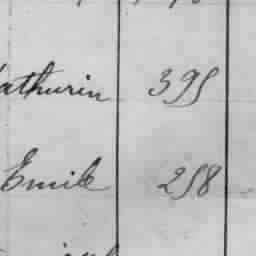 athurin 395
Emile 258